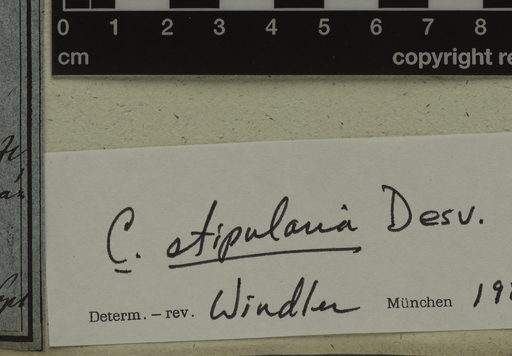 0 1 2 3 4 5 6 7 8
cm copyright re
C. stipularia Desv.
Determ. – rev. Windler München 19